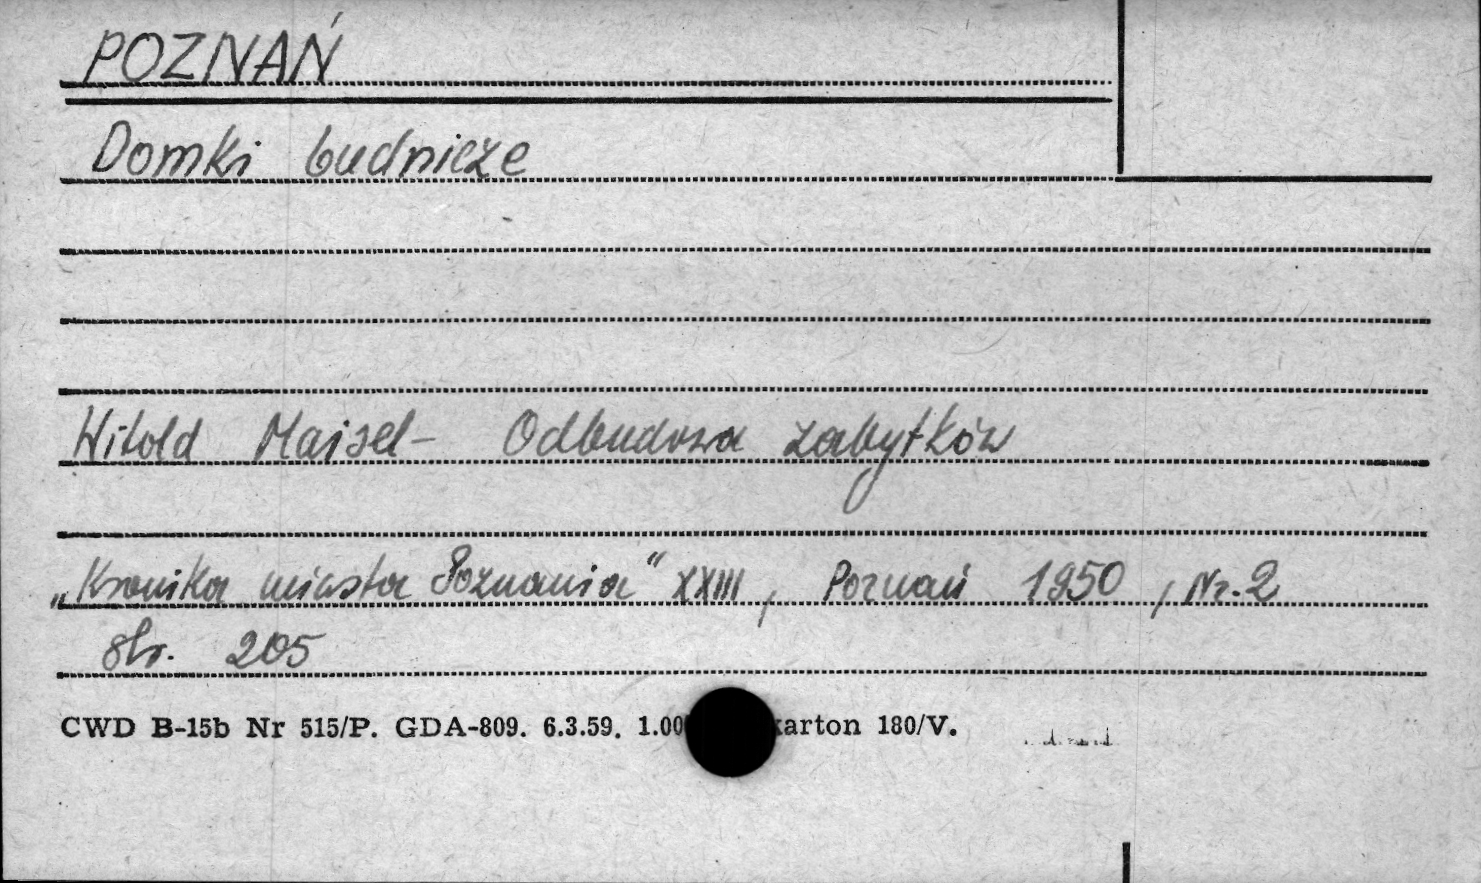 POZNAŃ
Domki budnicze
Witold Maisel - Odbudowa zabytków
„Kronika miasta Poznania" XXIII, Poznań 1950, Nr. 2
str. 205
CWD B-15b Nr 515/P. GDA-809. 6.3.59. 1.00 karton 180/V.